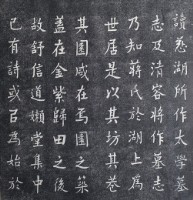 讀忽湖所作太學墓
志及清容將作墓志
乃知蔣氏於湖上為
世居是以其坊其巷
其園咸在焉園之築
蓋在金紫歸田之後
故舒信道嬾堂集中
已有詩或曰為始於